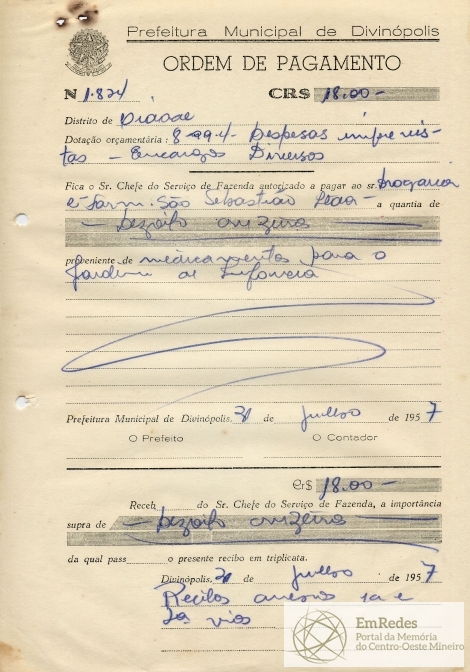 Prefeitura Municipal de Divinópolis
ORDEM DE PAGAMENTO
N 1.824 CR$ 18.00-
Distrito de
Dotação orçamentária: 8-99.4- Despesas imprevis-
tas - Encargos Diversos
Fica o Sr. Chefe do Serviço de Fazenda autorizado a pagar ao sr. Drogaria
e Farm. São Sebastião Ltda - a quantia de
- Dezoito cruzeiros
proveniente de medicamentos para o
Jardim de Infancia
Prefeitura Municipal de Divinópolis, 31 de julho de 1957
O Prefeito O Contador
Cr$ 18.00-
Receb do Sr. Chefe do Serviço de Fazenda, a importância
supra de - Dezoito cruzeiros
da qual pass o presente recibo em triplicata.
Divinópolis, 31 de julho de 1957
Recibos anexos 1a e
2a vias
EmRedes
Portal da Memória
do Centro-Oeste Mineiro